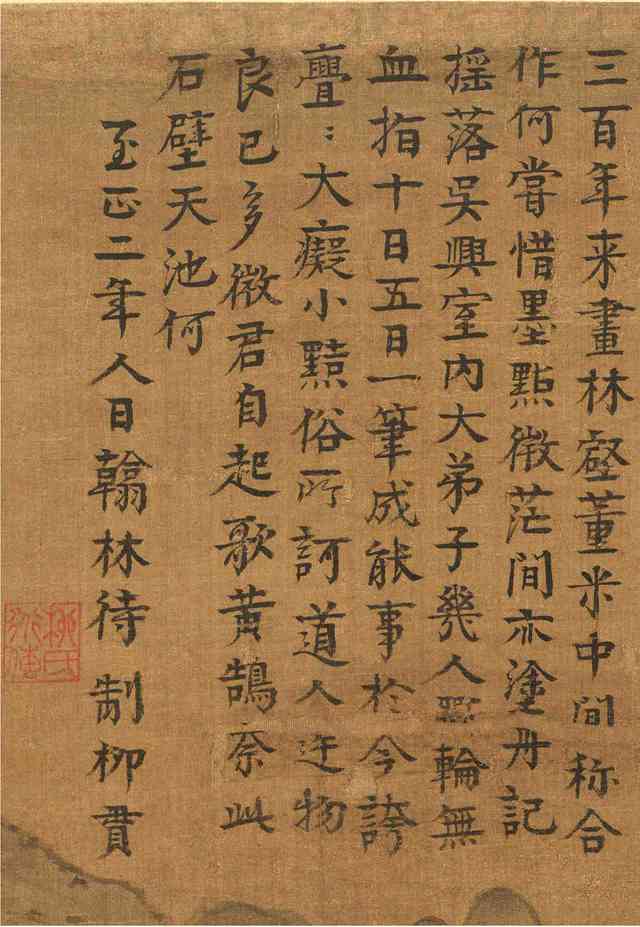 三百年来畫林壑董米中間称合
作何嘗惜墨點微茫間亦塗丹記
摇落吳興室內大弟子幾人斲輪無
血指十日五日一筆成能事於今誇
亹〻大癡小黠俗所訶道人迕物
良已多微君自起歌黃鵠奈此
石壁天池何
至正二年人日翰林待制柳貫